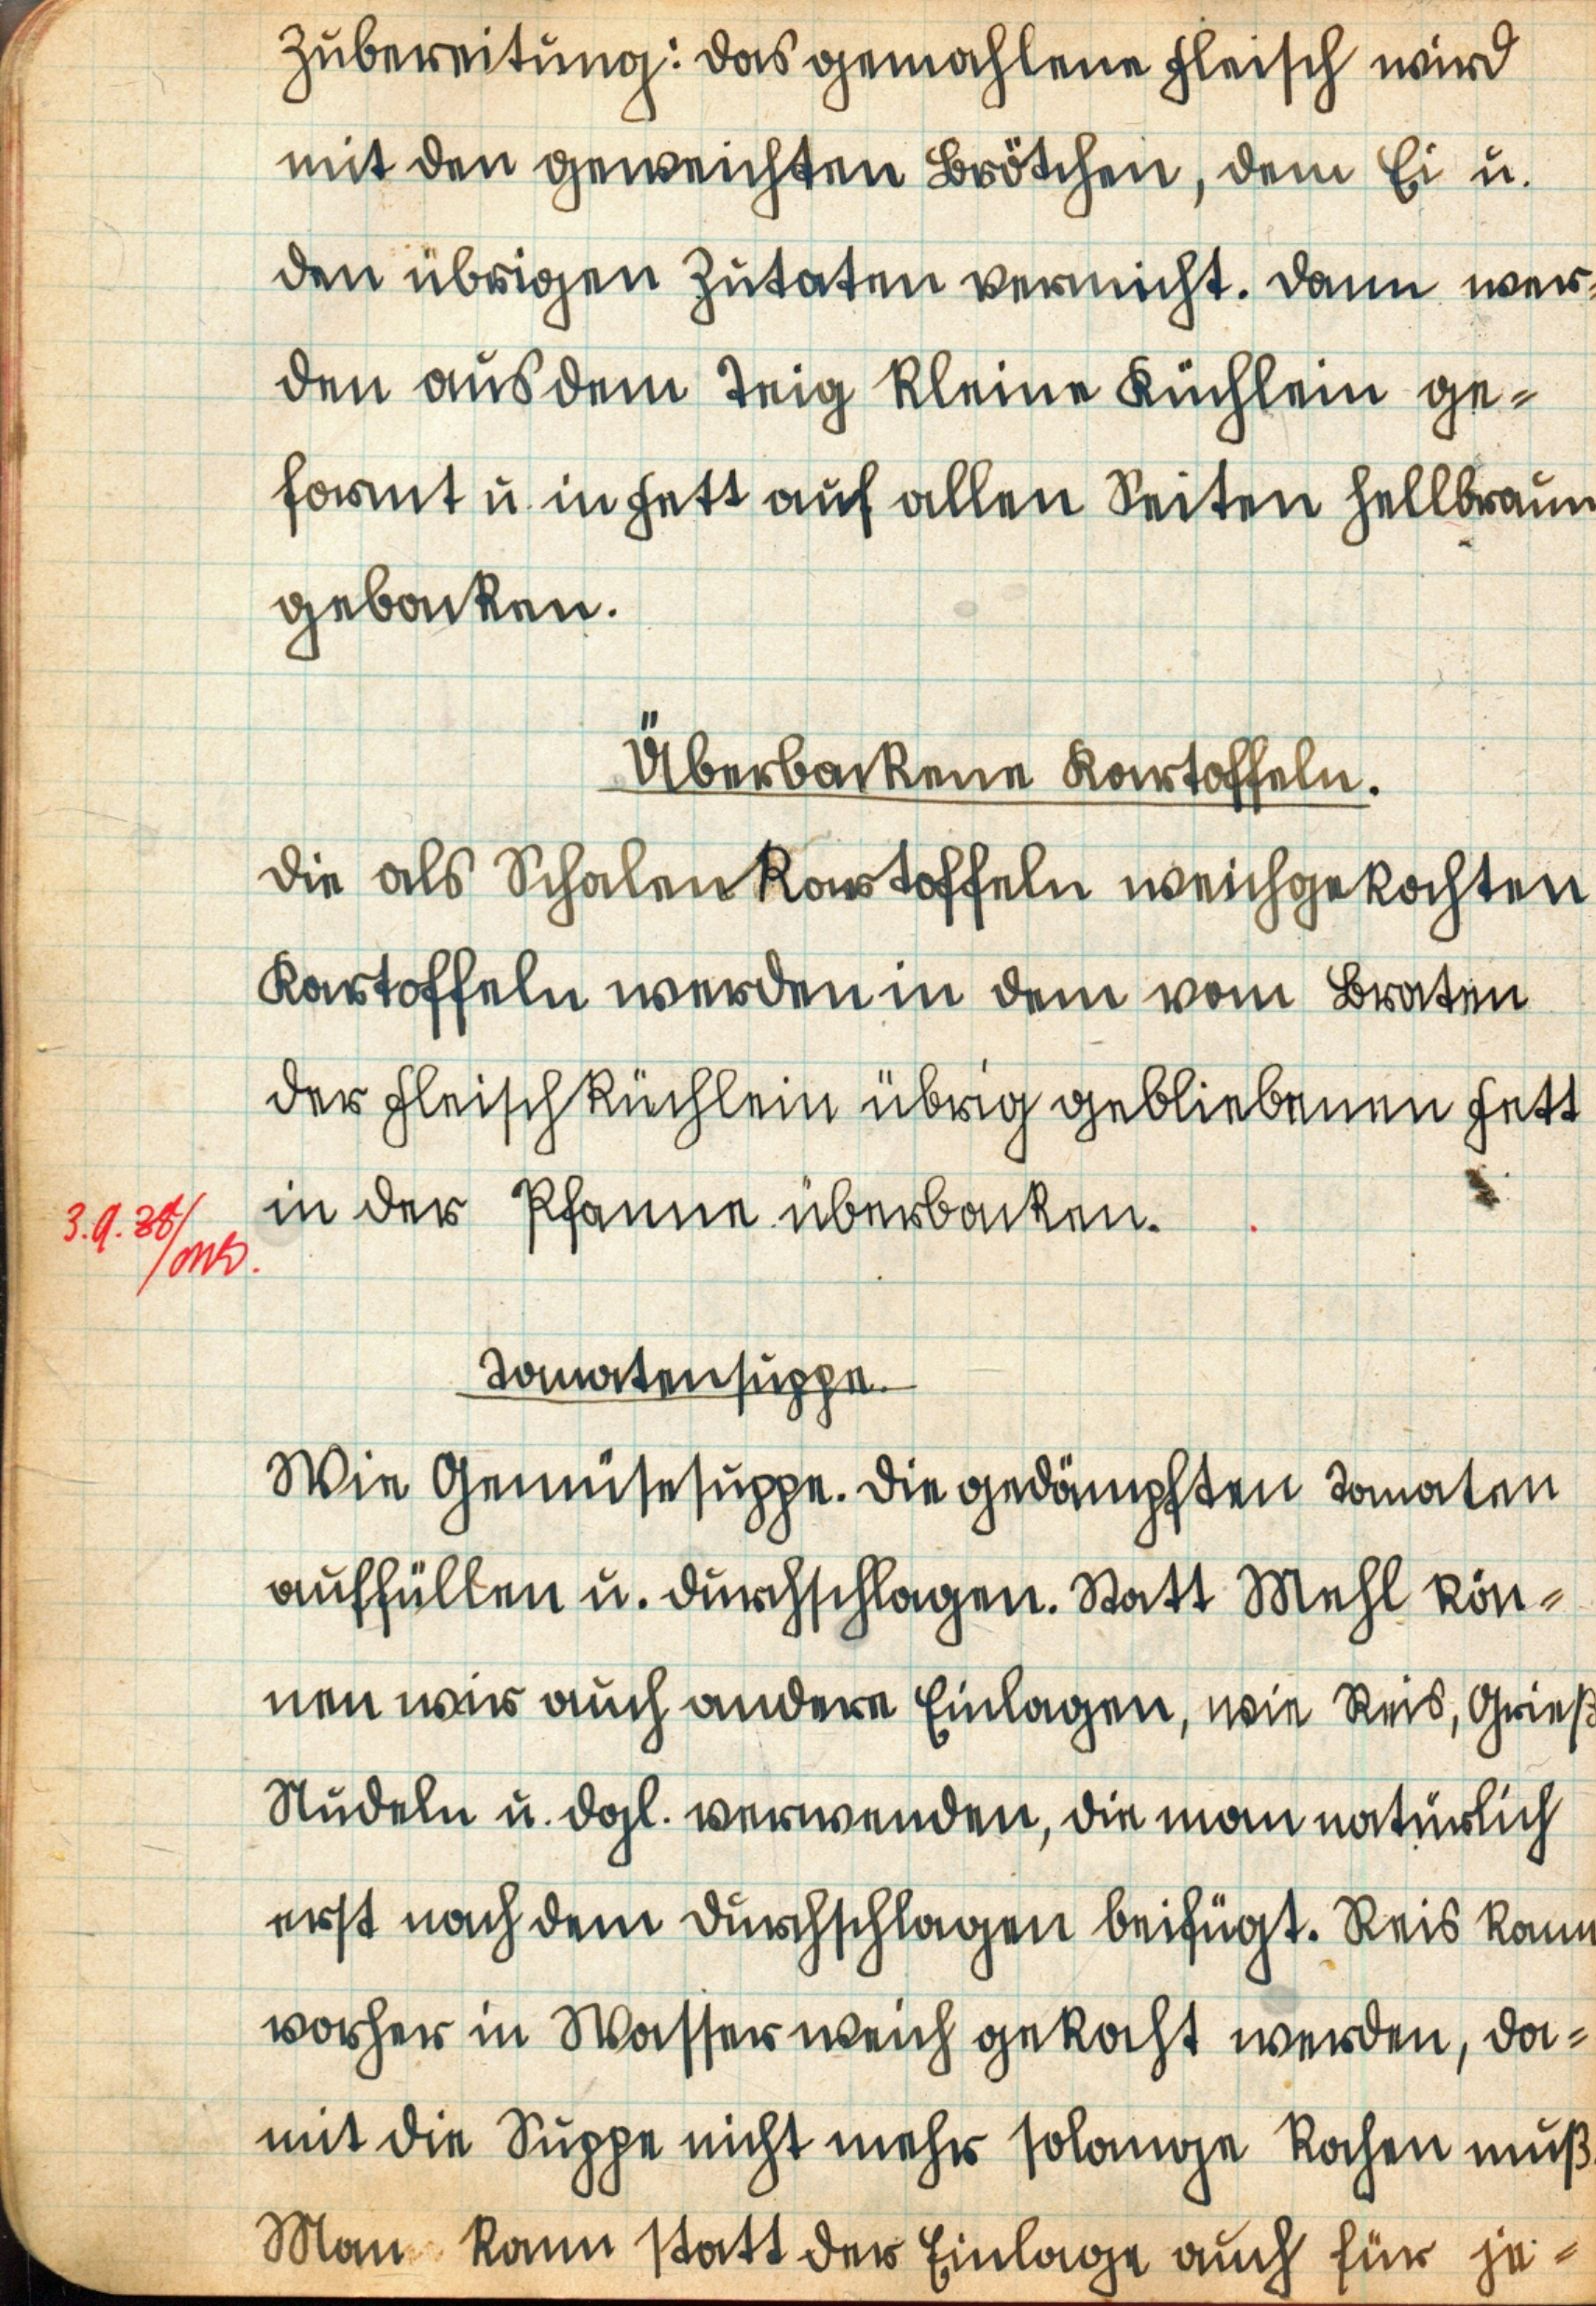 Zubereitung: Das gemahlene Fleisch wird
mit den geweichten Brötchen, dem Ei u.
den übrigen Zutaten vermicht. Dann wer=
den aus dem Teig kleine Küchlein ge=
formt u. in Fett auf allen Seiten hellbraun
gebacken.
Überbackene Kartoffeln.
Die als Schalenkartoffeln weichgekochten
Kartoffeln werden in dem vom Braten
der Fleischküchlein übrig gebliebenen Fett
in der Pfanne überbacken.
3.9.38/
Tomatensuppe.
Wie Gemüsesuppe. Die gedämpften Tomaten
auffüllen u. durchschlagen. Statt Mehl kön=
nen wir auch andere Einlagen, wie Reis, Grieß
Nudeln u. dgl. verwenden, die man natürlich
erst nach dem Durchschlagen beifügt. Reis kann
vorher in Wasser weich gekocht werden, da=
mit die Suppe nicht mehr solange kochen muß.
Man kann statt der Einlage auch für je=